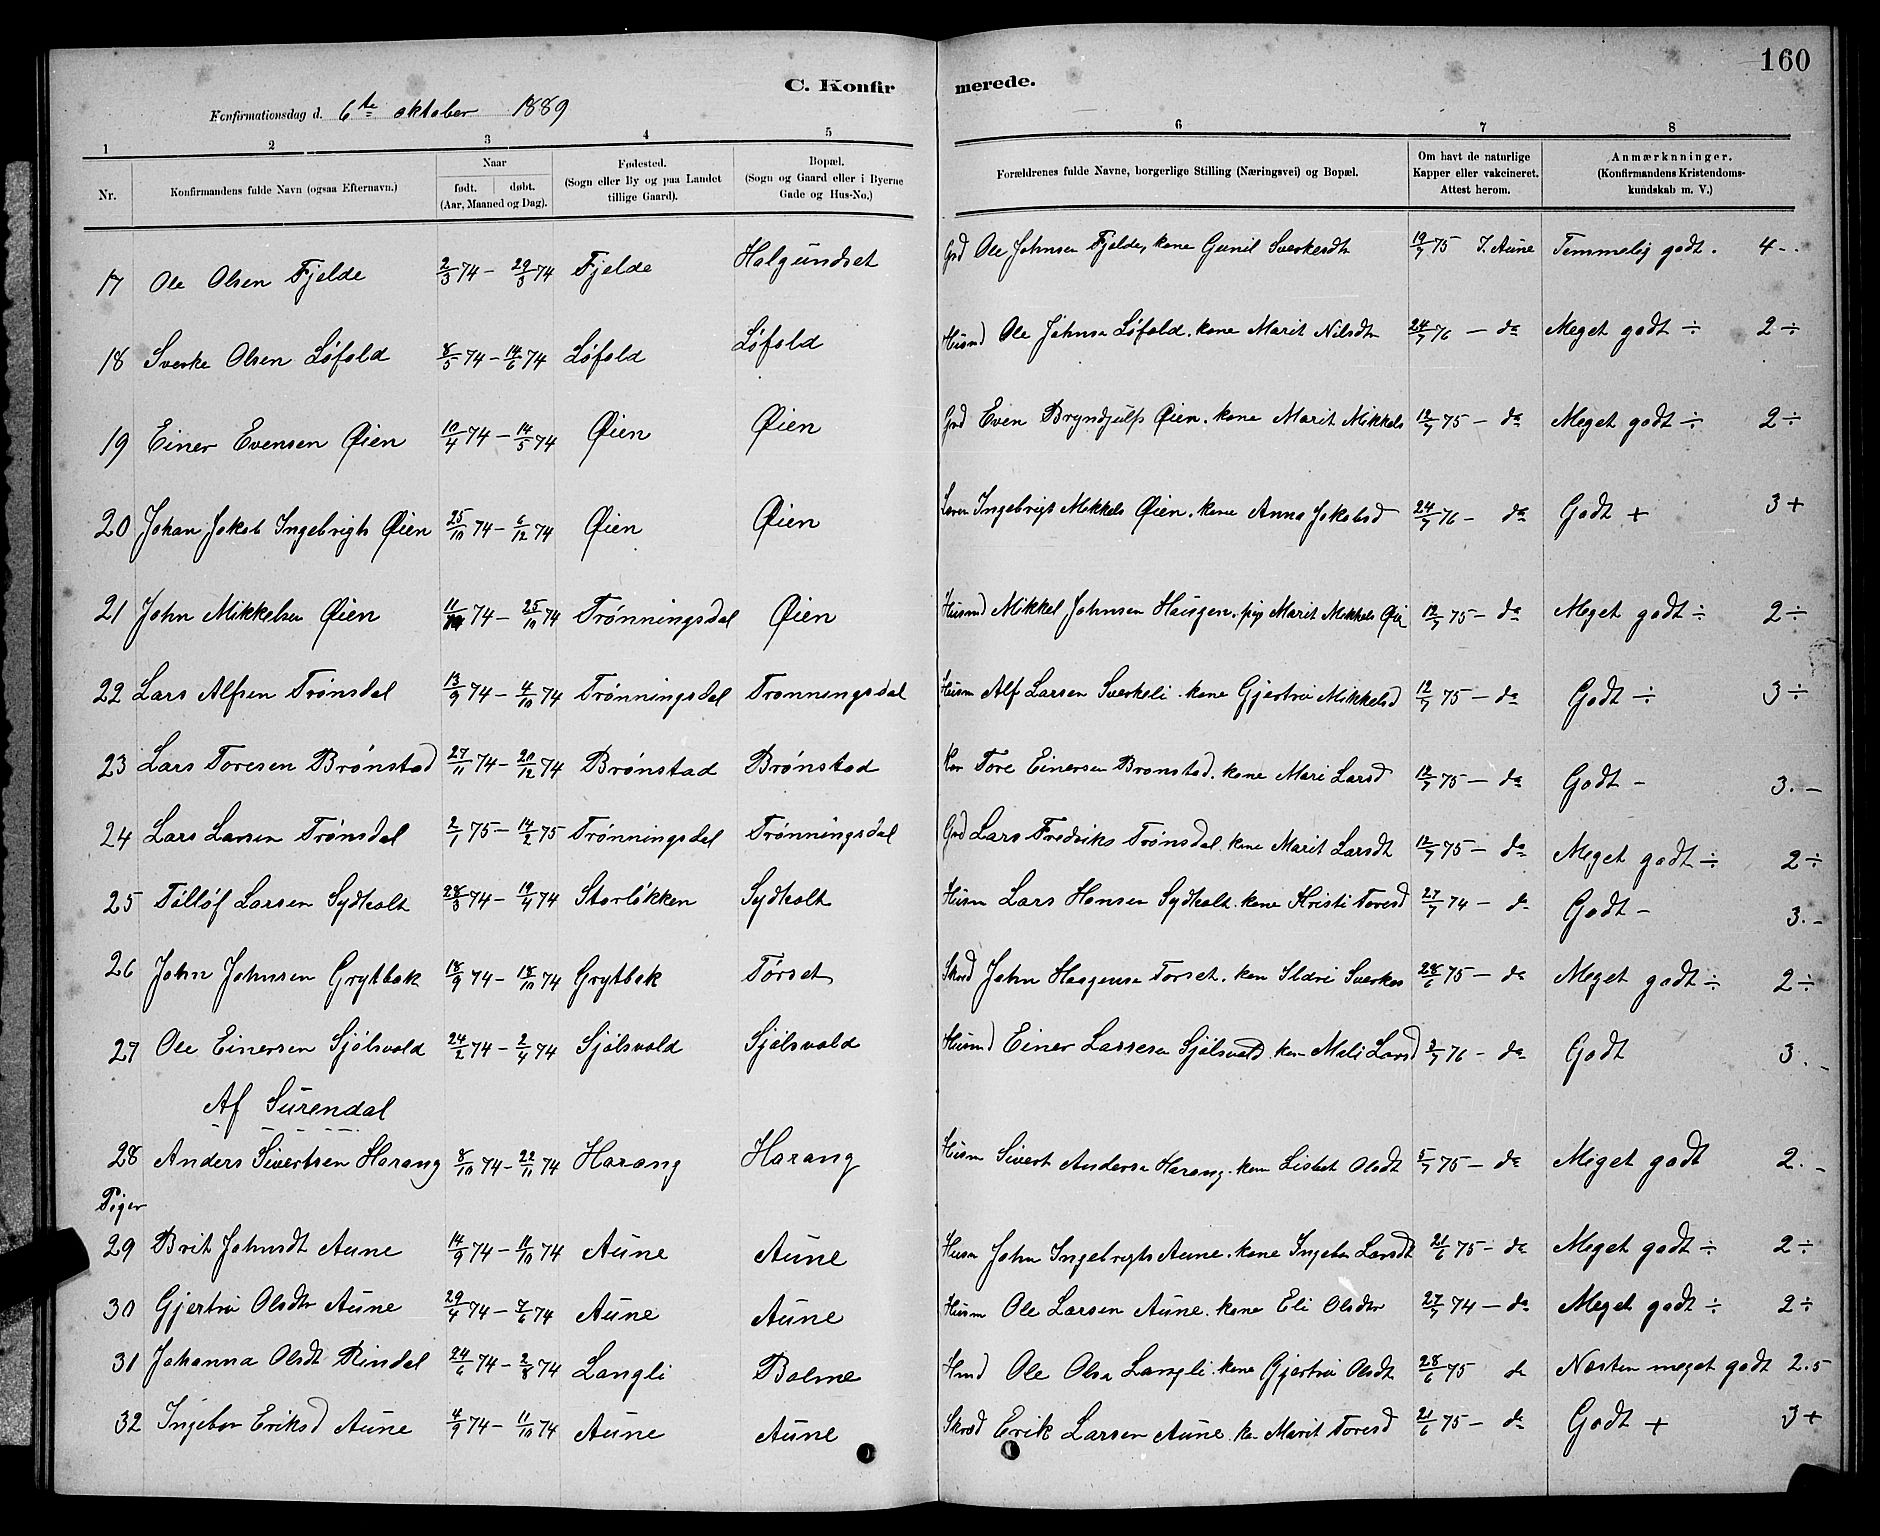 160
C. Konfirmerede.
Konfirmationsdag d. 6te oktober 1889
1 2 3 4 5 6 7 8
Nr. Konfirmandens fulde Navn (ogsaa Efternavn.) Naar født. døbt. (Aar, Maaned og Dag). Fødested. (Sogn eller By og paa Landet tillige Gaard). Bopæl. (Sogn og Gaard eller i Byerne Gade og Hus-No.) Forældrenes fulde Navne, borgerlige Stilling (Næringsvei) og Bopæl. Om havt de naturlige Kapper eller vakcineret. Attest herom. Anmærkninger. (Konfirmandens Kristendomskundskab m. V.)
17 Ole Olsen Fjelde 2/3 74 - 29/3 74 Fjelde Halgundset Grd Ole Johnsen Fjelde, kone Gunil Sverkesdt 19/7 75 I. Aune Temmelig godt. 4 -
18 Sverke Olsen Løfald 8/5 74 - 14/6 74 Løfald Løfald Husmd Ole Johnsn Løfald. kone Marit Nilsdt 24/7 76 - do Meget godt ÷ 2 ÷
19 Einer Evensen Øien 10/4 74 - 14/5 74 Øien Øien Grd Even Bryndjulfs Øien. kone Marit Mikkels 12/7 75 - do Meget godt ÷ 2 ÷
20 Johan Jakob Ingebrigts Øien 25/10 74 - 6/12 74 Øien Øien Ingebrigt Mikkels Øien. kone Anna Jakobsd 24/7 76 - do Godt + 3 +
21 John Mikkelsen Øien 11/ 74 - 25/10 74 Trønningsdal Øien Husmd Mikkel Johnsen Haugen. pig Marit Mikkels Øie 12/7 75 - do Meget godt ÷ 2 ÷
22 Lars Alfsen Trønsdal 13/9 74 - 4/10 74 Trønningsdal Trønningsdal Husm Alf Larsen Sverkeli. kone Gjertrø Mikkelsd 12/7 75 - do Godt ÷ 3 ÷
23 Lars Toresen Brønstad 27/11 74 - 20/12 74 Brønstad Brønstad Kar Tore Einersen Brønstad. kone Mari Larsd 12/7 75 - do Godt - 3. -
24 Lars Larsen Trønsdal 2/1 75 - 14/2 75 Trønningsdal Trønningsdal Grd Lars Fredriks Trønsdal. kone Marit Larsdt 12/7 75 - do Meget godt ÷ 2 ÷
25 Tølløf Larsen Sydhalt 28/3 74 - 19/4 74 Storløkken Sydhalt Husm Lars Hansen Sydhalt. kone Kristi Toresd 27/7 74 - do Godt - 3. -
26 John Johnsen Grytbak 18/9 74 - 18/10 74 Grytbak Tørset Skrd John Haagensn Torset. kon Ildri Sverkes 28/6 75 - do Meget godt ÷ 2 ÷
27 Ole Einersen Sjølsvold 24/2 74 - 2/4 74 Sjølsvold Sjølsvold Husmd Einer Larsesn Sjølsvold. kon Mali Larsd 3/7 76 - do Godt 3. -
Af Surendal
28 Anders Sivertsen Harang 8/10 74 - 22/11 74 Harang Harang Husm Sivert Andersn Harang. kon Lisbet Olsdt 5/7 75 - do Meget godt 2. -
Piger
29 Brit Johnsdt Aune 14/9 74 - 11/10 74 Aune Aune Husm John Ingebrigts Aune. kone Ingebor Larsdt 21/6 75 - do Meget godt ÷ 2 ÷
30 Gjertrø Olsdtr Aune 29/4 74 - 7/6 74 Aune Aune Husm Ole Larsen Aune. kone Eli Olsdtr 27/7 74 - do Meget godt ÷ 2 ÷
31 Johanna Olsdt Rindal 24/6 74 - 2/8 74 Langli Bolme Hmd Ole Olsn Langli. kone Gjertrø Olsdt 28/6 75 do Næsten meget godt 2.5
32 Ingebor Eriksd Aune 4/9 74 - 11/10 74 Aune Aune Skrd Erik Larsen Aune. kn Marit Toresd 21/6 75 - do Godt + 3 +